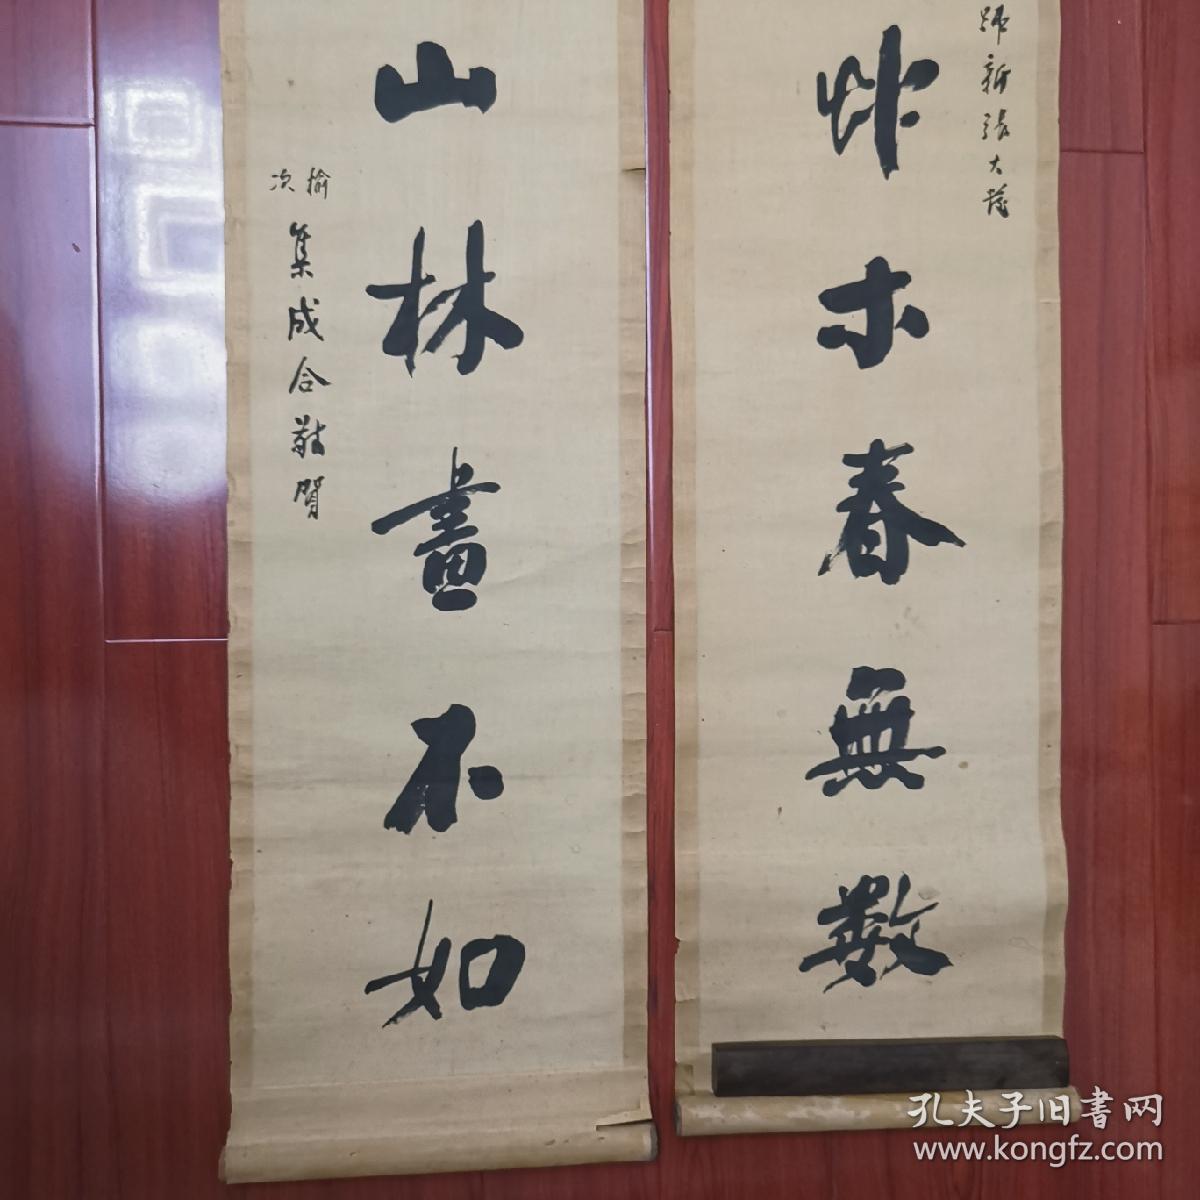 新張大喜
艸木春無數
山林畫不如
榆次
集成合敬賀
孔夫子旧書网
www.kongfz.com